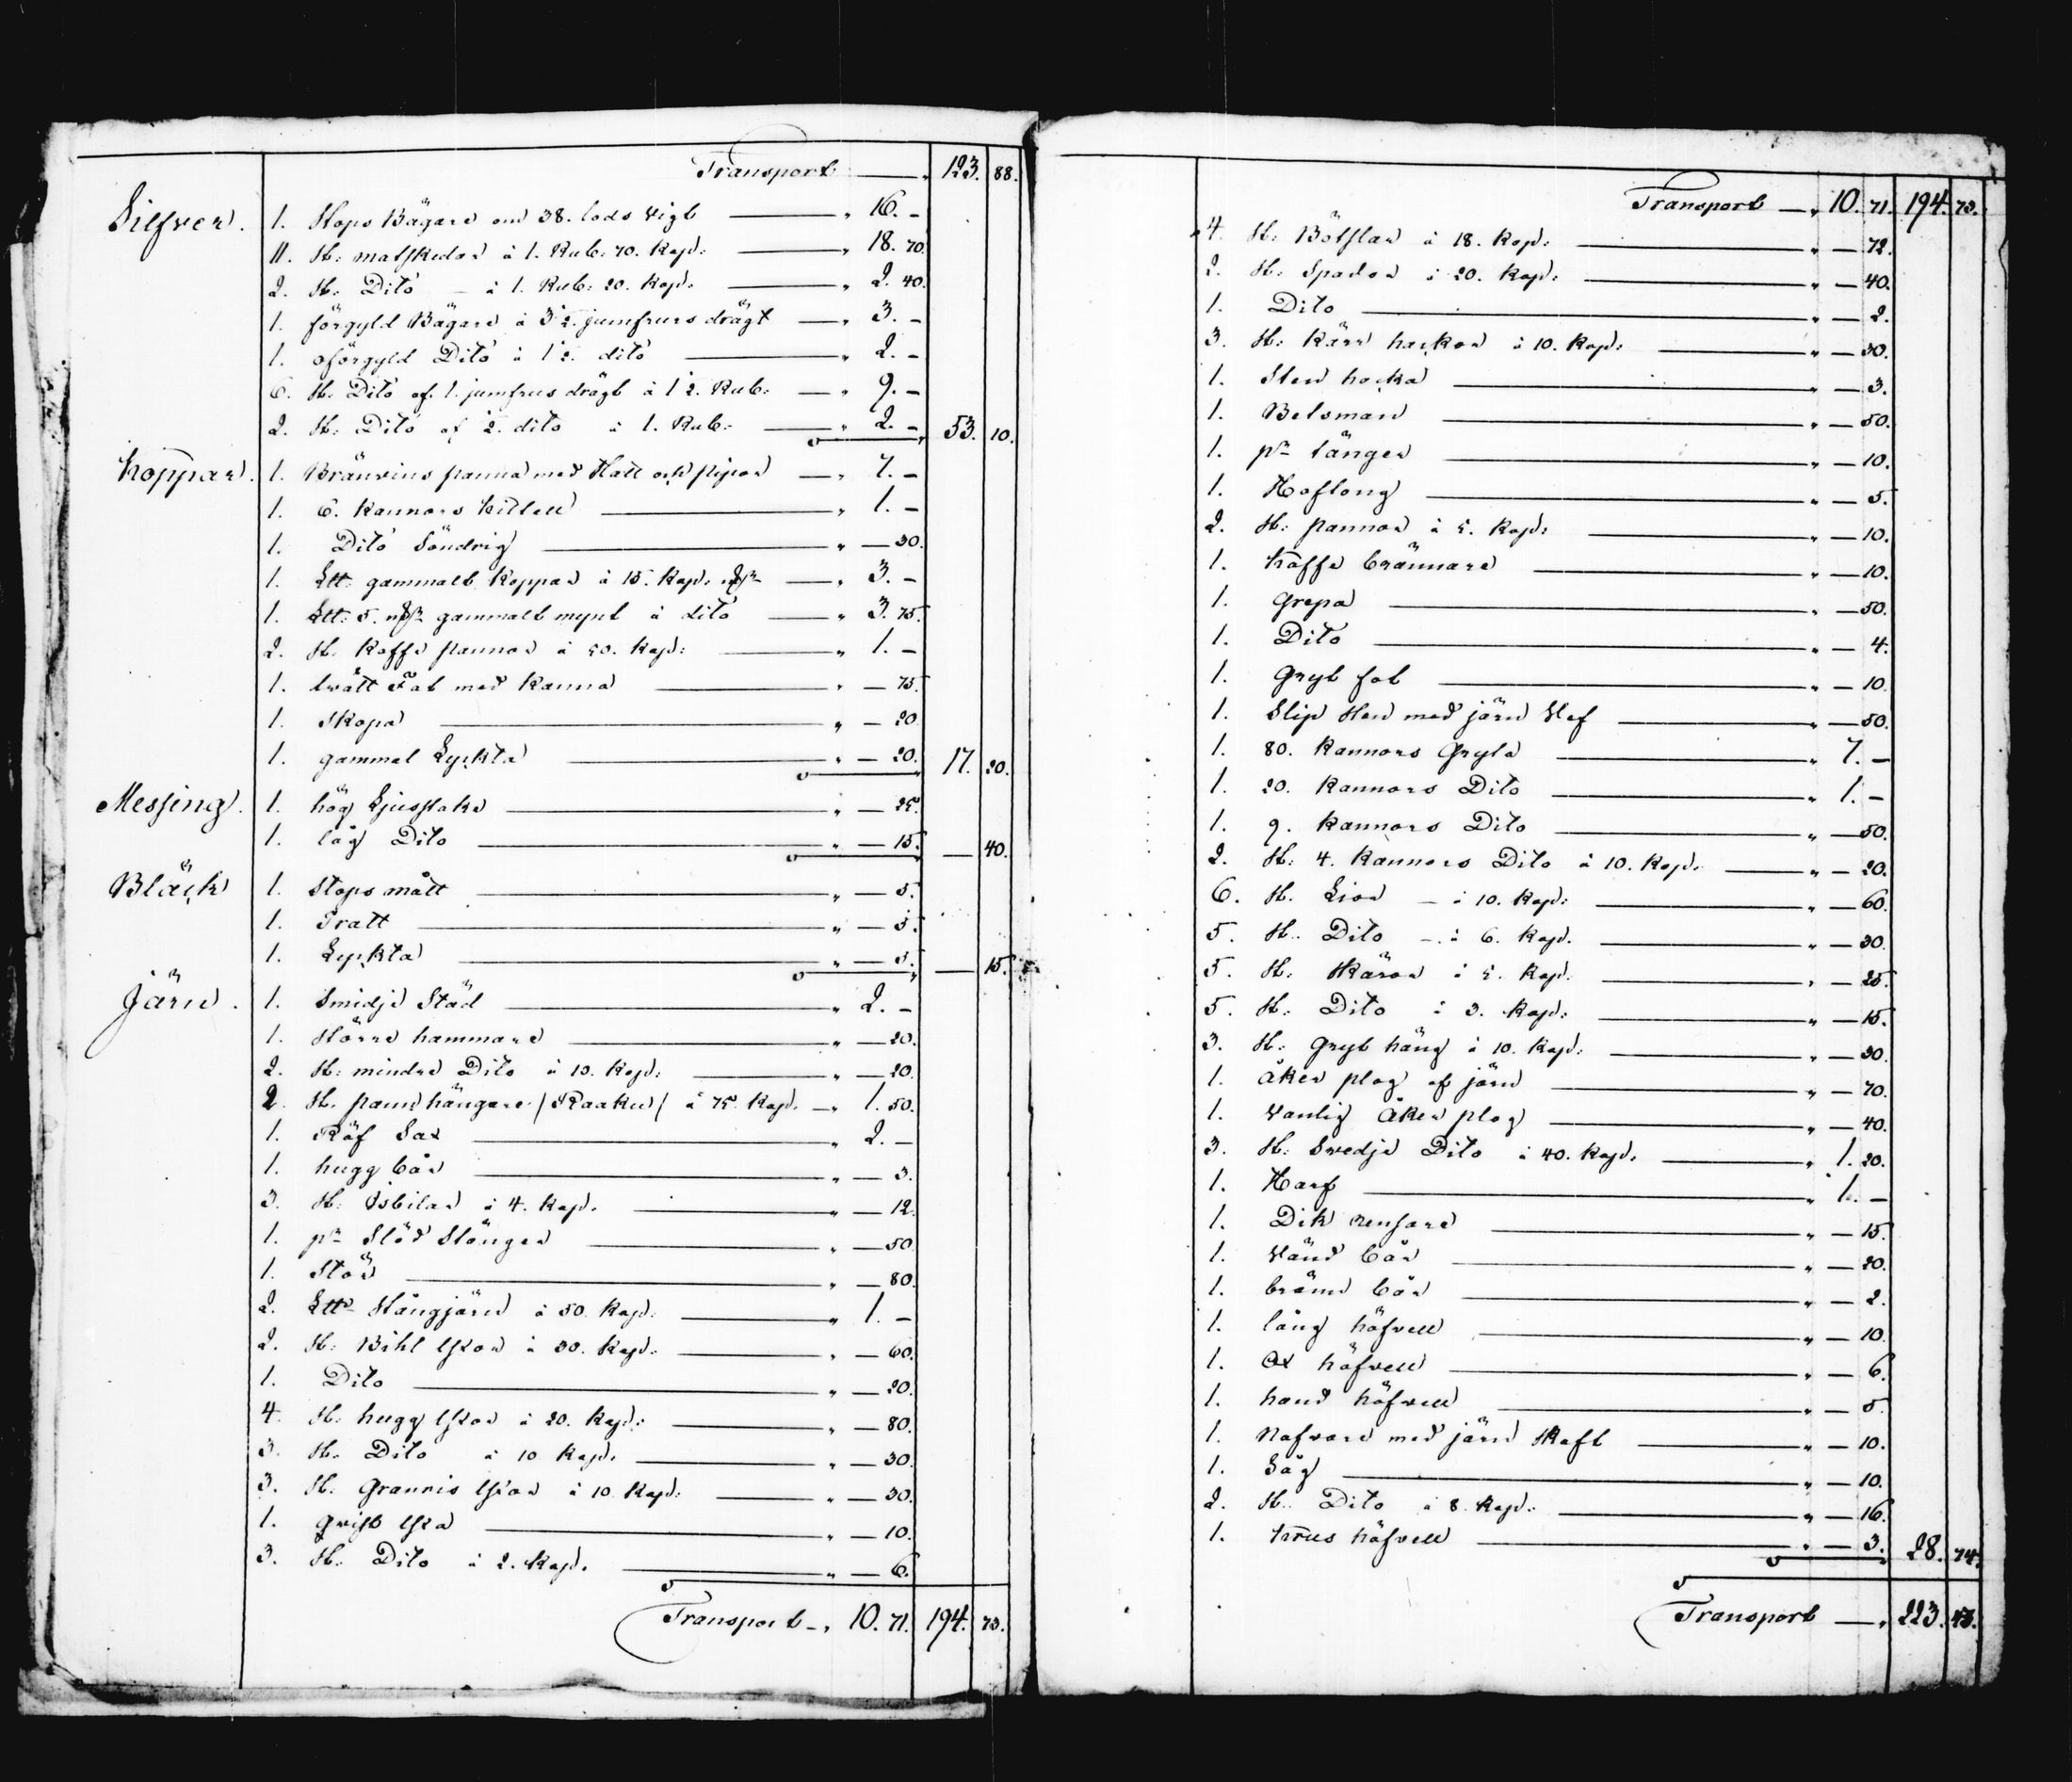 Transport — " 123. 88.
Silfver. 1. Stops Bägare om 38. lods vigt — " 16. –
11. St: matskedar à 1. Rub: 70. Kop: — " 18. 70.
2. St: Dito – à 1. Rub: 20. Kop: — " 2. 40.
1. förgyld Bägare à 3½. jumfrurs drägt — " 3. –
1. oförgyld Dito à 1½. dito — " 2. –
6. St: Dito af 1. jumfrus drägt à 1½. Rub: — " 9. –
2. St: Dito af ½. dito à 1. Rub: — " 2. – 53. 10.
Koppar. 1. Bränvins panna med Hatt och pipor — " 7. –
1. 6. Kannors Kittell — " 1. –
1. Dito Söndrig — " — 30.
1. Ltt: gammalt Koppar à 15. Kop: — " 3. –
1. Ltt: 5. gammalt mynt à dito — " 3. 75.
2. St. Kaffe pannor à 50. Kop: — " 1. –
1. tvätt Fat med Kanna — " — 75.
1. Skopa — " — 20
1. gammal Lyckta — " — 20. 17. 20.
Messing. 1. hög Ljusstake — " — 25.
1. låg Dito — " — 15. — 40.
Bläck 1. Stops mått — " — 5.
1. Tratt — " — 5.
1. Lyckta — " — 5. — 15.
Järn. 1. Smidje Städ — " 2. –
1. större hammare — " — 20.
2. St: mindre Dito à 10. Kop: — " — 20.
2. St. pann hängare /Raaku/ à 75. Kop. — " 1. 50.
1. Räf Sax — " 2. –
1. hugg bår — " — 3.
3. St: Isbilar à 4. Kop. — " — 12
1. pr Släd Stänger — " — 50
1. Stör — " — 80.
2. Ltt: Stångjärn à 50. Kop. — " 1. –
2. St: Bihl Yxor à 30. Kop. — " — 60.
1. Dito — " — 20.
4. St: hugg Yxor à 20. Kop: — " — 80.
3. St. Dito à 10 Kop. — " — 30.
3. St. Granris Yxor à 10. Kop: — " — 30.
1. Yxa — " — 10.
3. St. Dito à 2. Kop. — " — 6.
Transport – " 10. 71. 194. 73.
Transport — " 10. 71. 194. 73.
4. St: à 18. Kop: — " — 72.
2. St: Spador à 20. Kop: — " — 40.
1. Dito — " — 2.
3. St: Kärr hackor à 10. Kop: — " — 30.
1. Sten hacka — " — 3.
1. Betsman — " — 50.
1. pr tänger — " — 10.
1. Hoftong — " — 5.
2. St: pannor à 5. Kop: — " — 10.
1. Kaffe brännare — " — 10.
1. Grepa — " — 50.
1. Dito — " — 4.
1. Gryt fot — " — 10
1. Slip Sten med järn Vef — " — 50.
1. 80. Kannors Gryta — " 7. –
1. 20. Kannors Dito — " 1. –
1. 9. Kannors Dito — " — 50.
2. St: 4. Kannors Dito à 10. Kop. — " — 20.
6. St. Liar – à 10. Kop: — " — 60.
5. St.. Dito – à 6. Kop. — " — 30.
5. St: Skäror à 5. Kop. — " — 25.
5. St: Dito à 3. Kop: — " — 15.
3. St: Gryt häng à 10. Kop: — " — 30.
1. åker plog af järn — " — 70.
1. vanlig åker plog — " — 40.
3. St: Swedje Dito à 40. Kop. — " 1. 20.
1. Harf — " 1. –
1. Dik rensare — " — 15.
1. Vänd bår — " — 20.
1. bränn bår — " — 2.
1. lång höfvell — " — 10.
1. Ox höfvell — " — 6.
1. hand höfvell — " — 5.
1. Nafvare med järn Skaft — " — 10.
1. Såg — " — 10.
2. St.. Dito à 8. Kop. — " — 16.
1. Krus höfvell — " — 3. 28. 74.
Transport — " 223. 43.